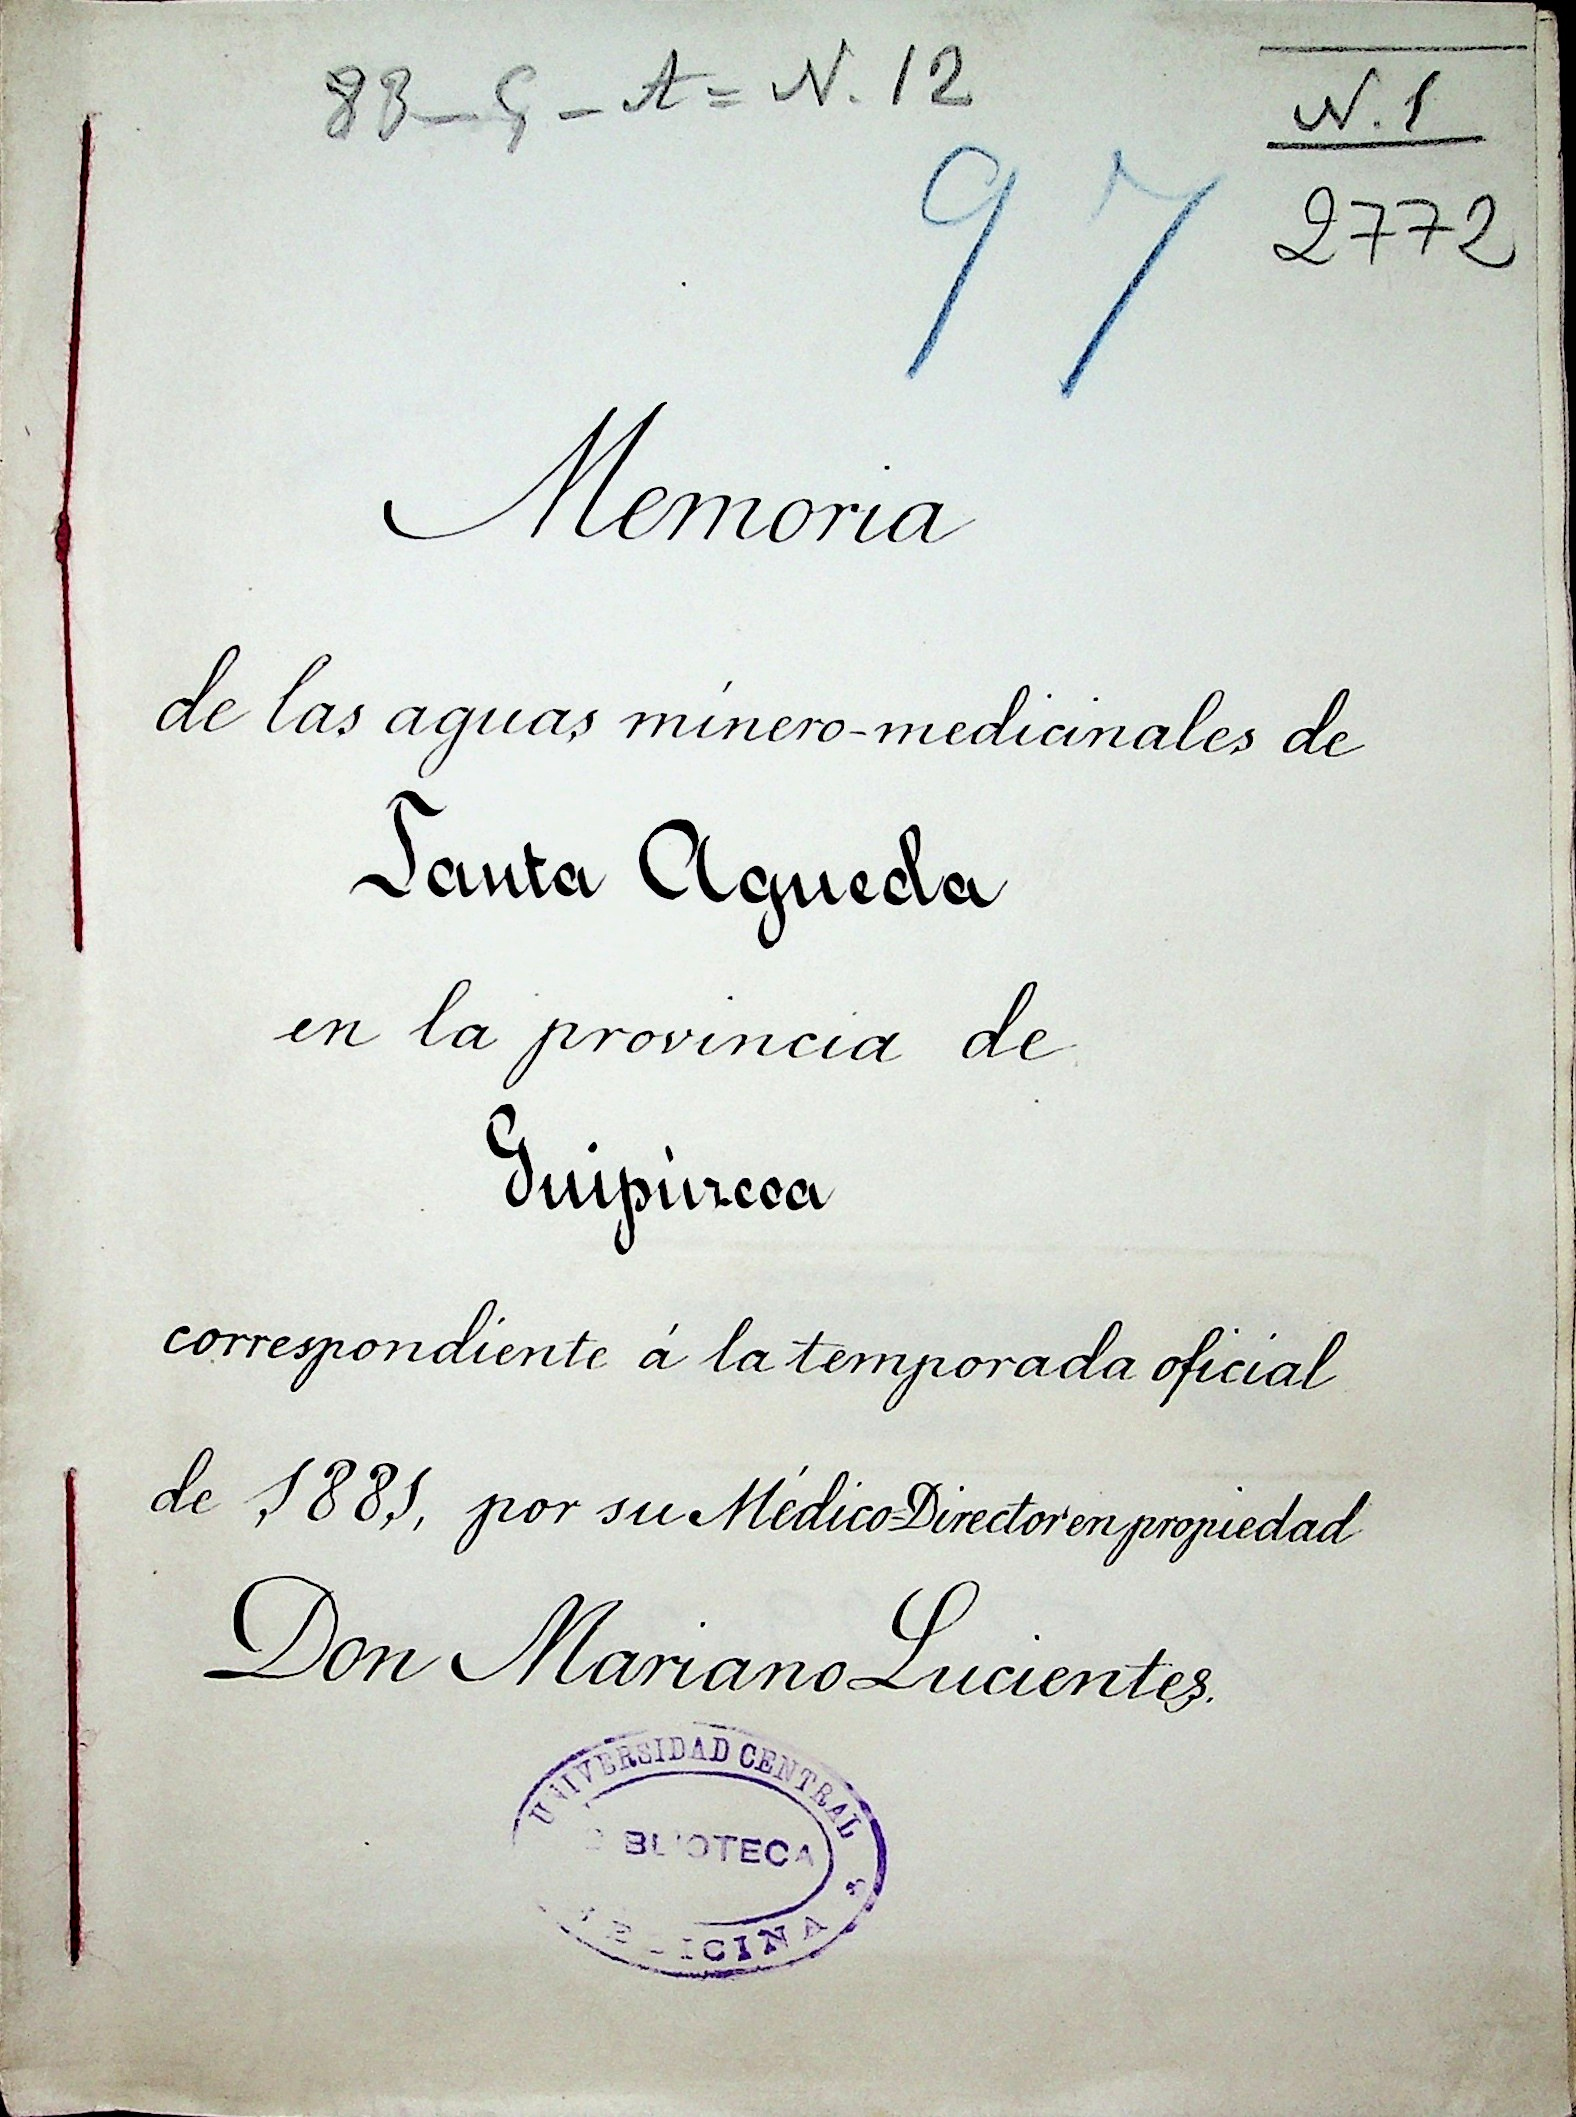 83-G-A=N. 12
N. 1
2772
97
Memoria
de las aguas mínero-medicinales de
Santa Agueda
en la provincia de
Guipúzcoa
correspondiente á la temporada oficial
de 1881, por su Médico-Director en propiedad
Don Mariano Lucientes.
UNIVERSIDAD CENTRAL
BIBLIOTECA
MEDICINA